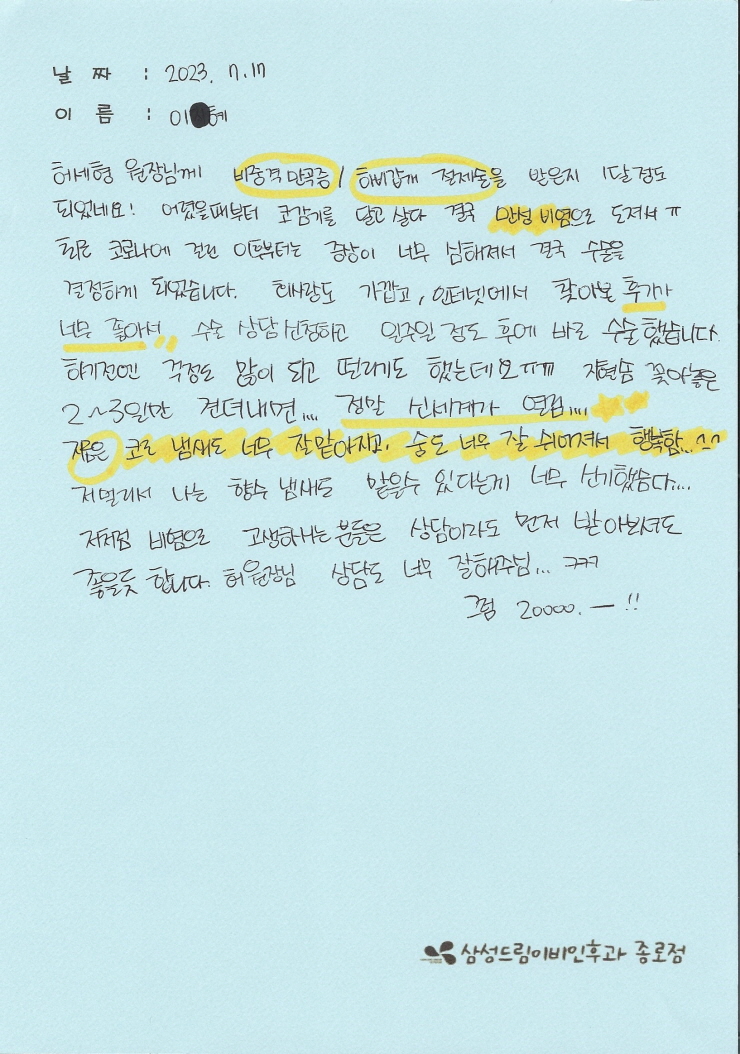 날 짜 : 2023. 7. 17
이 름 : 이 혜
허세형 원장님께 비중격 만곡증 / 하비갑개 절제술을 받은지 1달정도
되었네요! 어렸을때부터 코감기를 달고 살다 결국 만성 비염으로 도져서 ㅠ
최근 코로나에 걸린 이후부터는 증상이 너무 심해져서 결국 수술을
결정하게 되었습니다. 회사랑도 가깝고, 인터넷에서 찾아본 후기가
너무 좋아서,, 수술 상담 신청하고 일주일 정도 후에 바로 수술했습니다.
하기전엔 걱정도 많이 되고 떨리기도 했는데요ㅠㅠ 지혈솜 꽂아놓은
2~3일만 견뎌내면.... 정말 신세계가 열림....
지금은 코로 냄새도 너무 잘맡아지고, 숨도 너무 잘 쉬어져서 행복함..^^
저멀리서 나는 향수 냄새도 맡을수 있다는게 너무 신기했습니다....
저처럼 비염으로 고생하시는 분들은 상담이라도 먼저 받아보셔도
좋을듯 합니다. 허원장님 상담도 너무 잘해주심... ㅋㅋㅋ
그럼 20000. ㅡ !!
삼성드림이비인후과 종로점